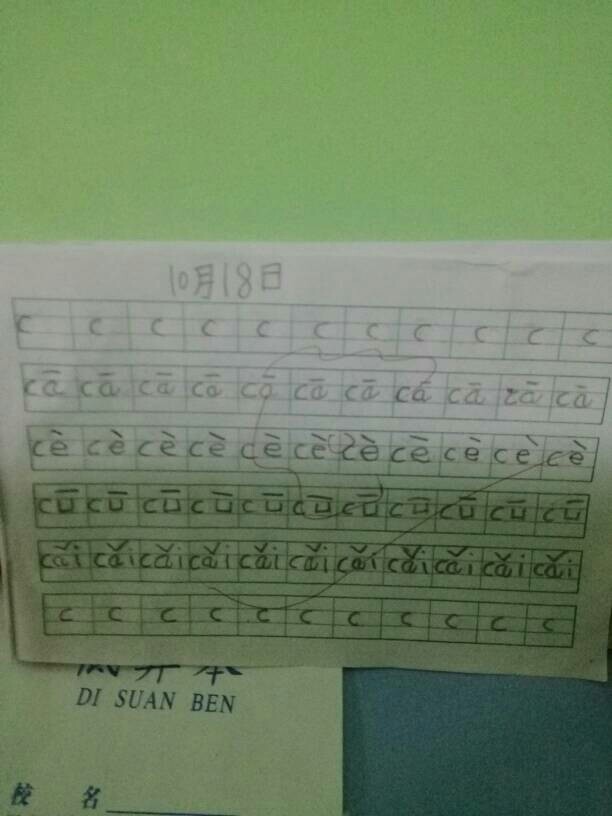 10月18日
c c c c c c c c c c c
cā cā cā cā cā cā cā cá cā zā cā
cè cè cè cè cè cè zè cē cè cè cè
cū cū cū cū cū cū cū cū cū cū cū
cǎi cǎi cǎi cǎi cǎi cǎi cǎi cǎi cǎi cǎi cǎi
c c c c c c c c c c c
DI SUAN BEN
校 名